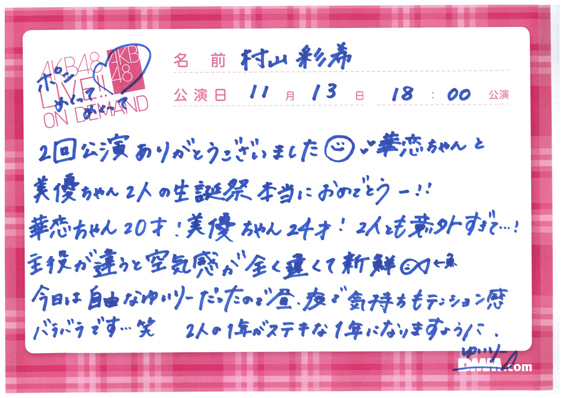 AKB48
LIVE!!
ON DEMAND
AKB
48
ポン
めくって
めくって
名 前 村山彩希
公演日 11月13日 18:00 公演
2回公演ありがとうございました 華恋ちゃんと
美優ちゃん2人の生誕祭本当におめでとうー!!
華恋ちゃん20才!美優ちゃん24才! 2人とも意外すぎて…!
主役が違うと空気感が全く違くて新鮮 ←魚
今日は自由なゆいりーだったので昼、夜で気持ちもテンション感
バラバラです…笑 2人の1年がステキな1年になりますように、
ゆいりー
DMM.com